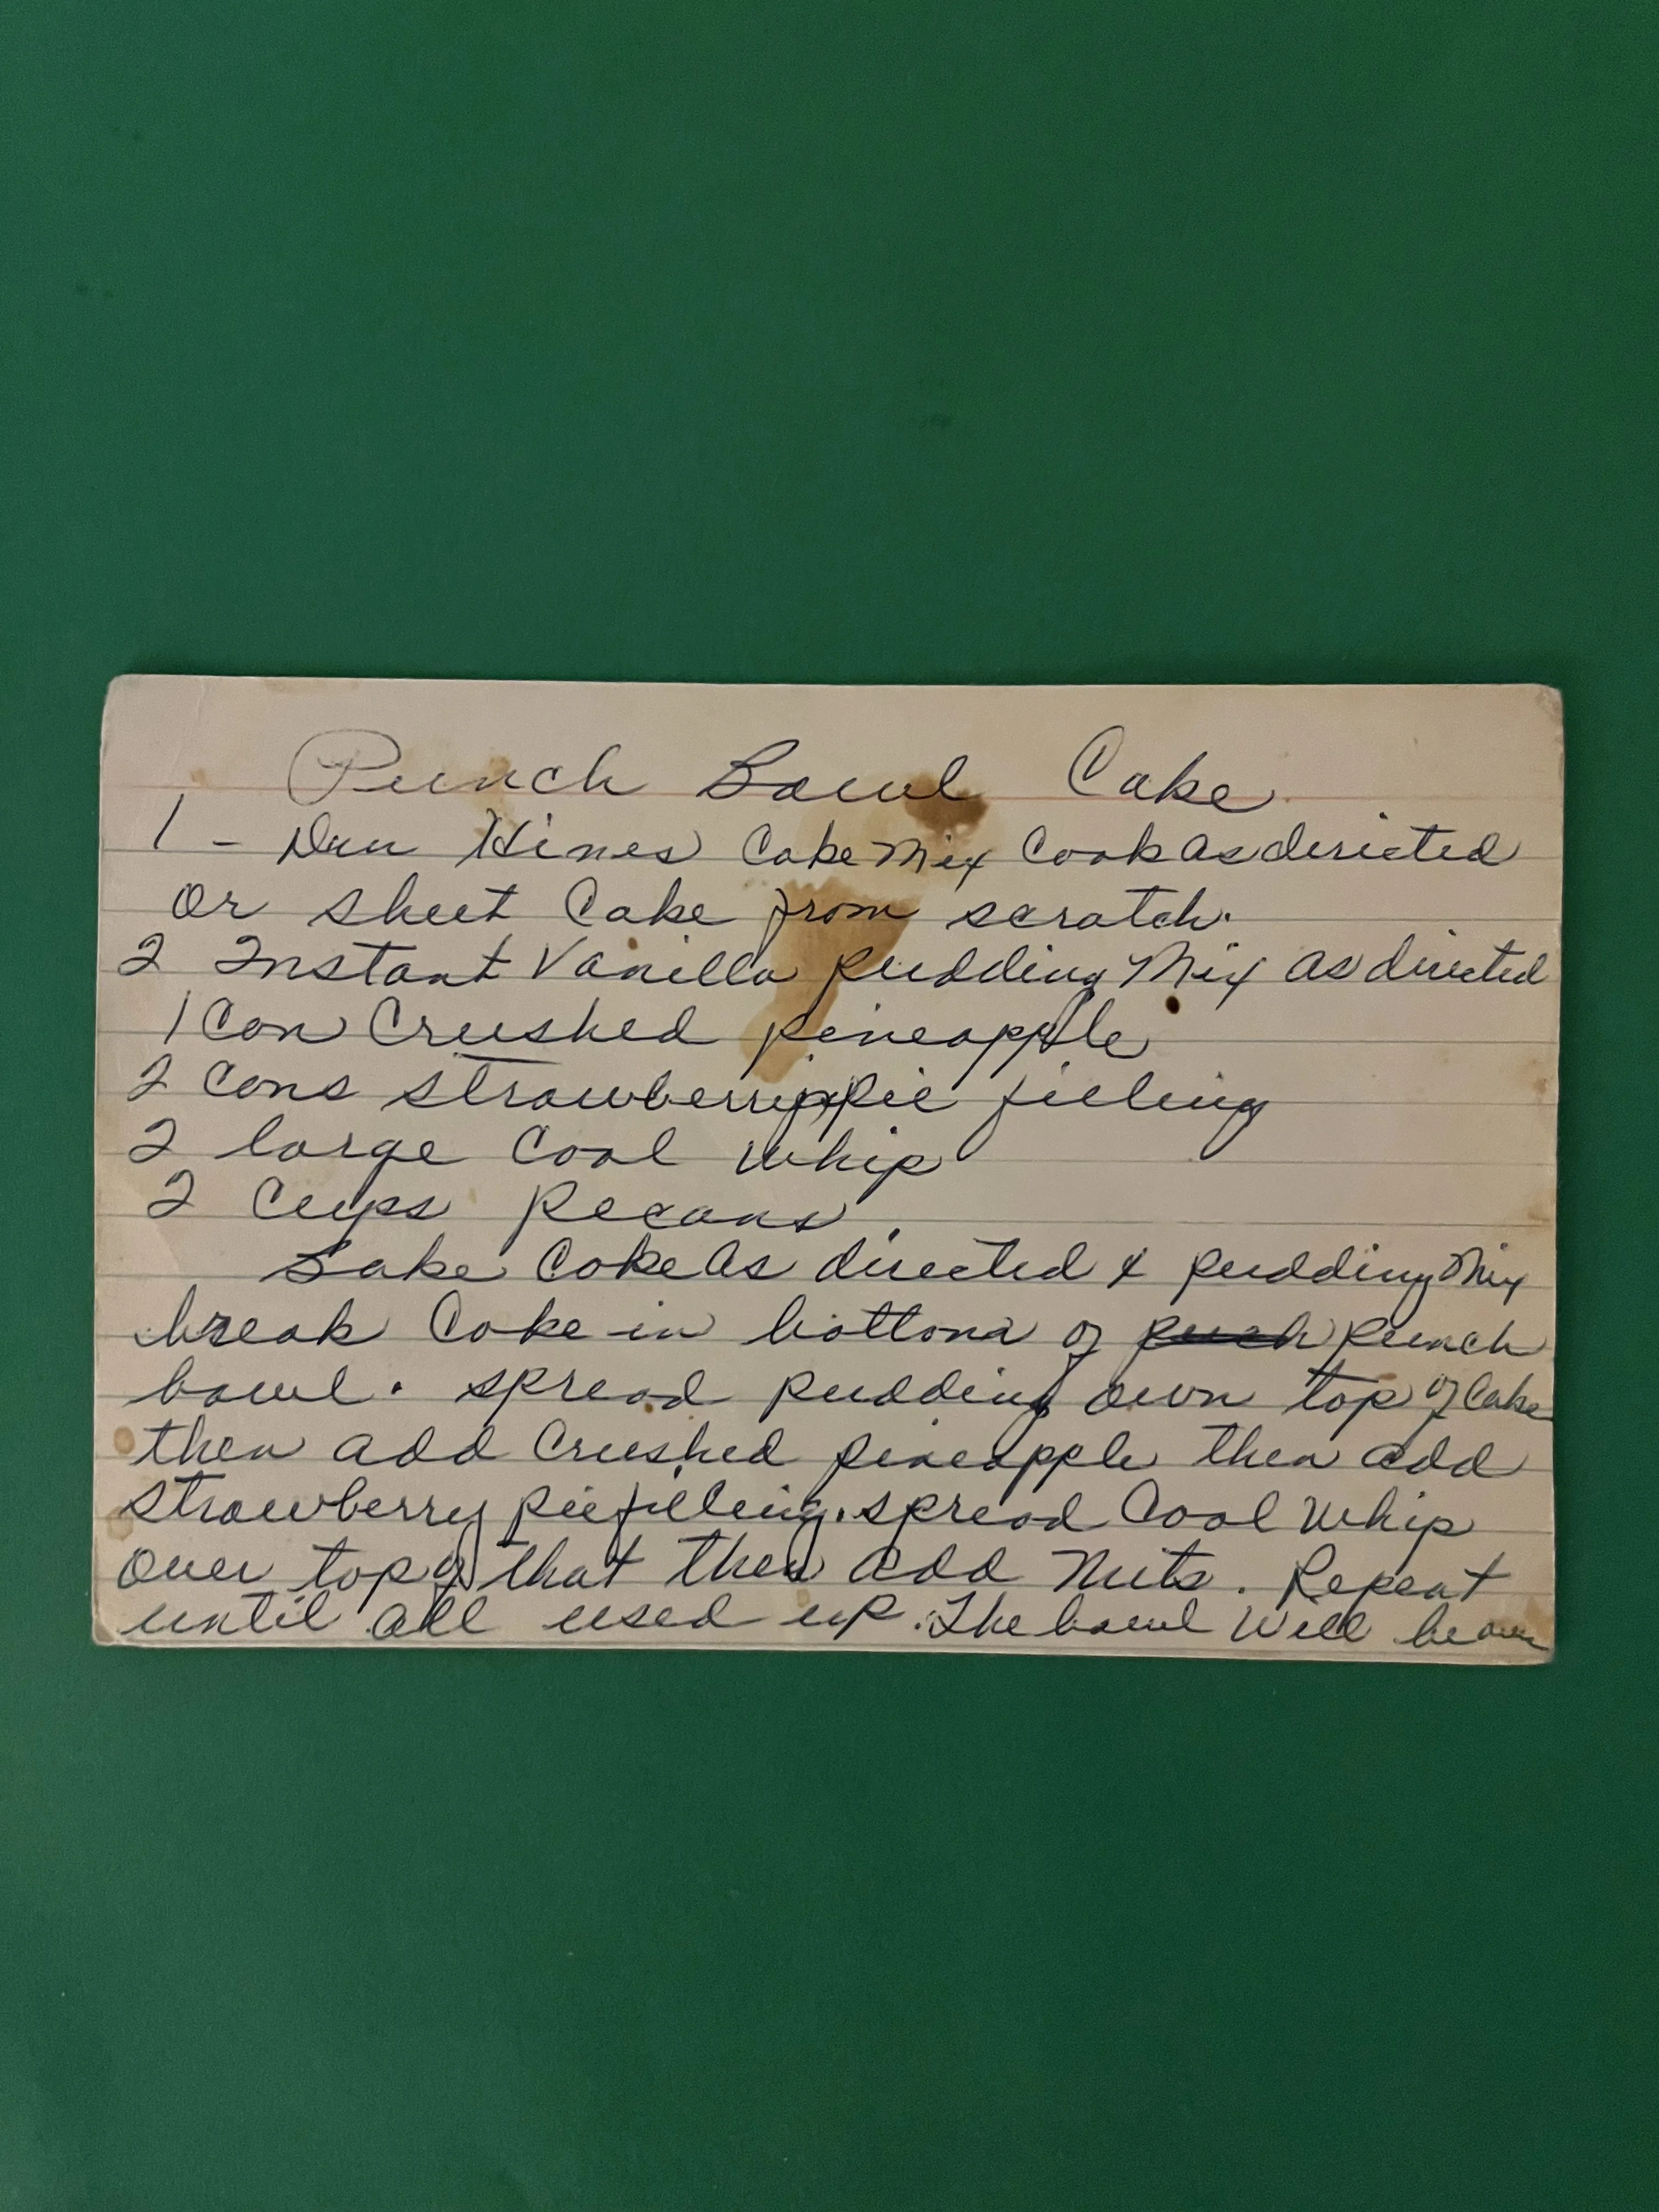 Punch Bowl Cake
1 - Dun Hines Cake Mix Cook as dirieted
Or sheet Cake from scratch.
2 Instant Vanilla pudding Mix as directed
1 Can Crushed pineapple
2 Cans strawberry pie filling
2 large Cool Whip
2 Cups Pecans
Bake Cake As directed & pudding Mix
break Cake in bottom of punch
bowl. spread pudding own top of Cake
then add Crushed pineapple then add
strawberry pie filling. spread Cool Whip
over top of that then add Nuts. Repeat
until all used up. The bowl Will be